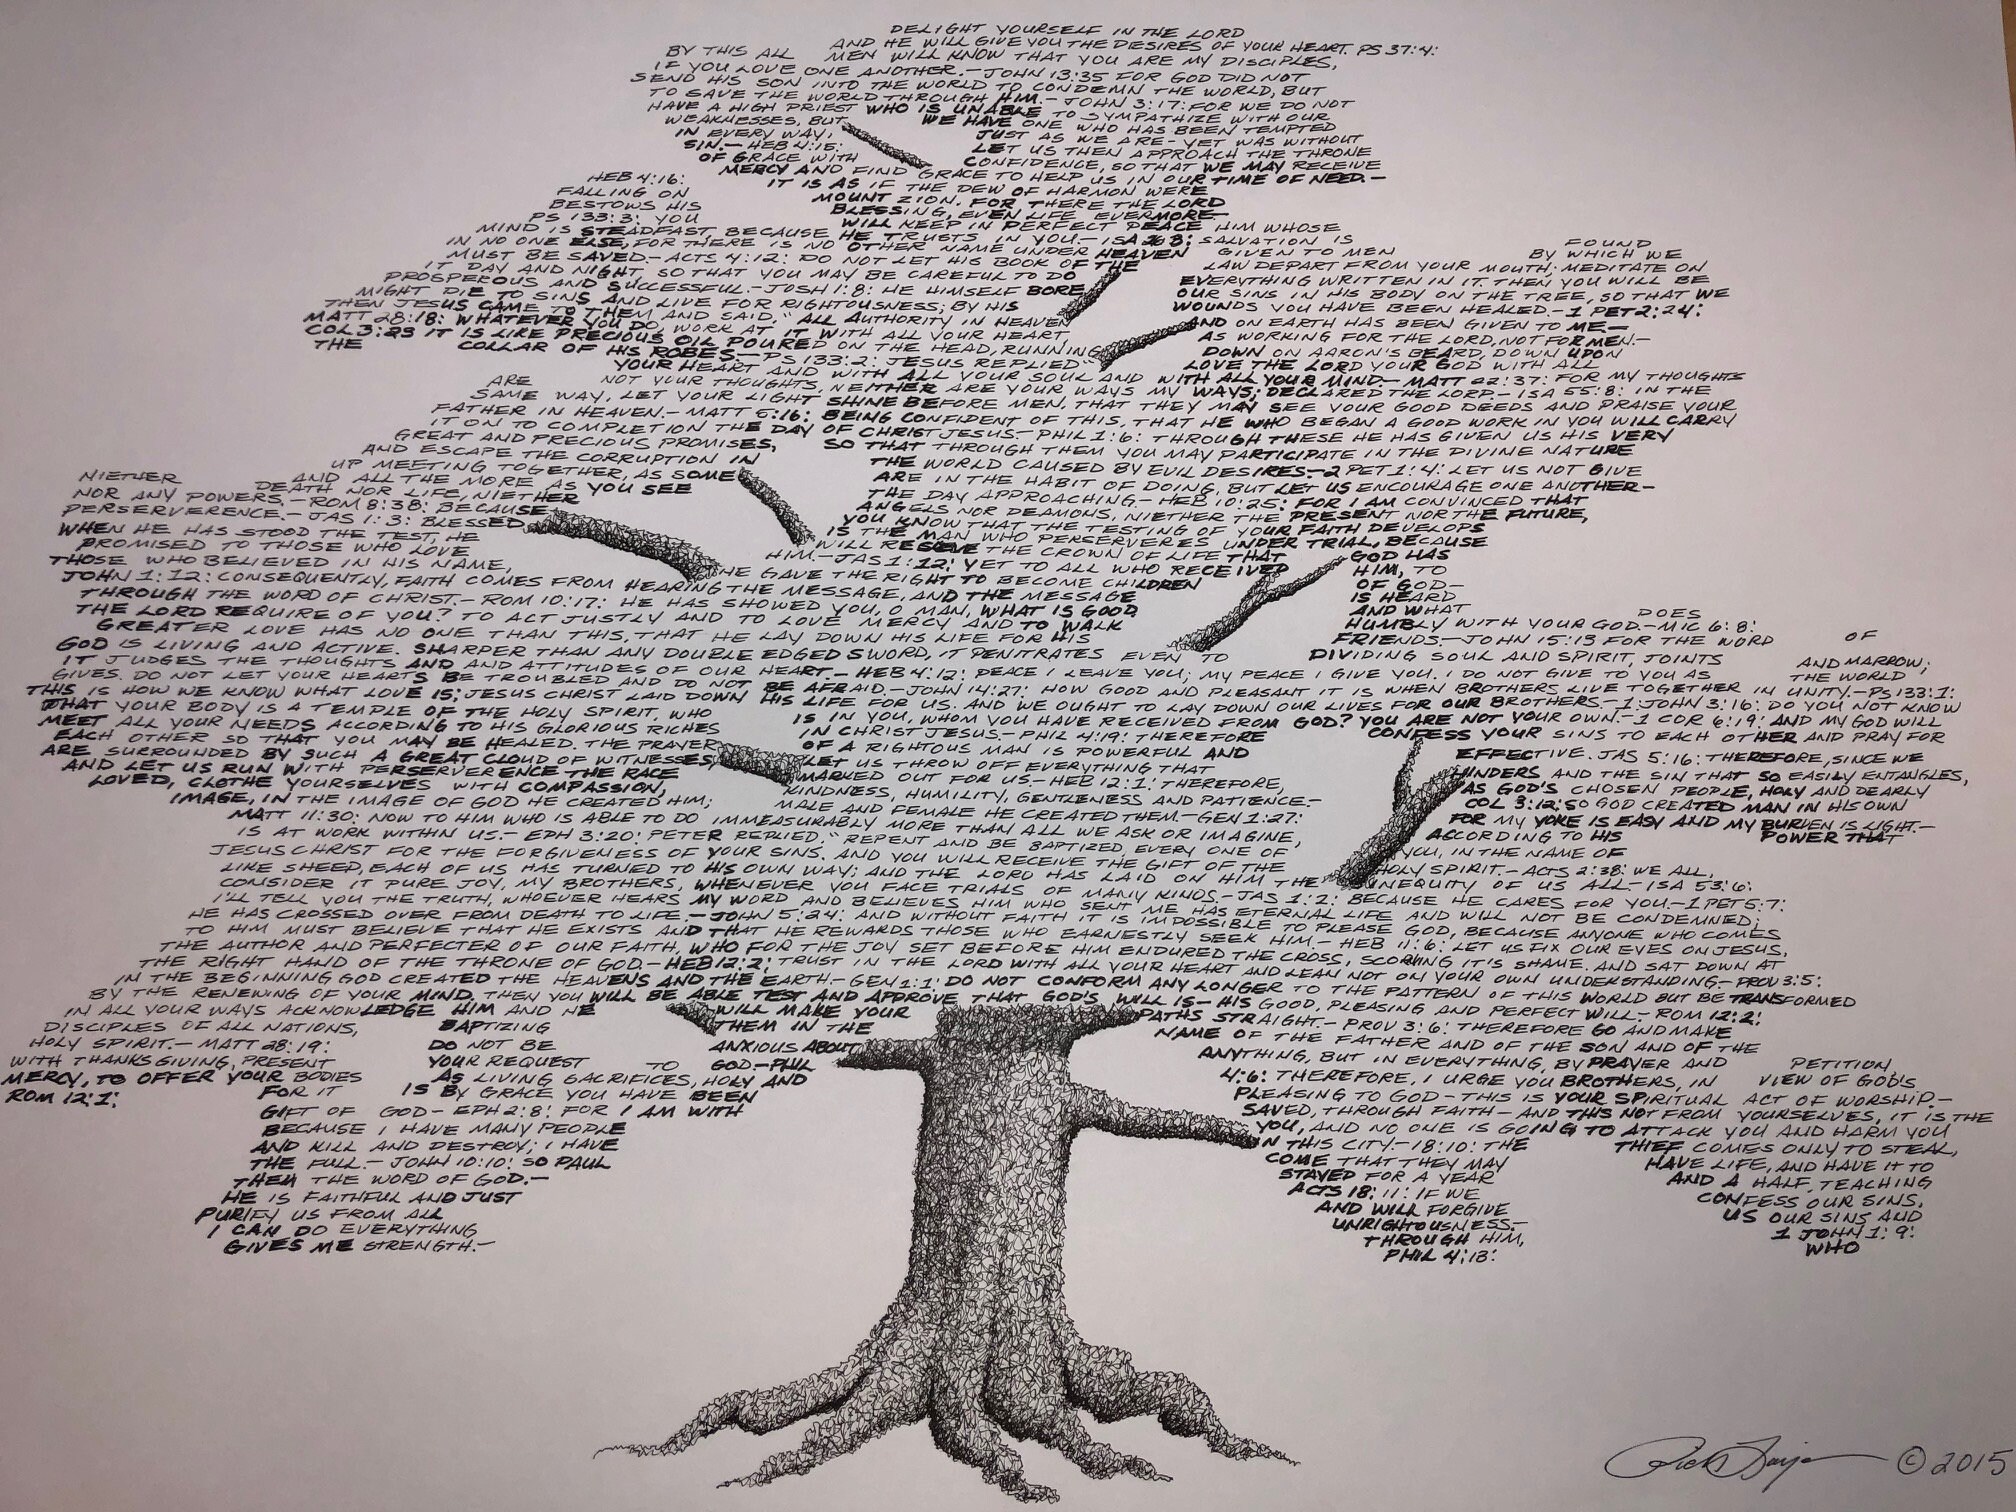 DELIGHT YOURSELF IN THE LORD
AND HE WILL GIVE YOU THE DESIRES OF YOUR HEART. PS 37:4:
BY THIS ALL MEN WILL KNOW THAT YOU ARE MY DISCIPLES,
IF YOU LOVE ONE ANOTHER.—JOHN 13:35 FOR GOD DID NOT
SEND HIS SON INTO THE WORLD TO CONDEMN THE WORLD, BUT
TO SAVE THE WORLD THROUGH HIM.—JOHN 3:17: FOR WE DO NOT
HAVE A HIGH PRIEST WHO IS UNABLE TO SYMPATHIZE WITH OUR
WEAKNESSES, BUT WE HAVE ONE WHO HAS BEEN TEMPTED
IN EVERY WAY, JUST AS WE ARE-YET WAS WITHOUT
SIN.—HEB 4:15: LET US THEN APPROACH THE THRONE
OF GRACE WITH CONFIDENCE, SO THAT WE MAY RECEIVE
MERCY AND FIND GRACE TO HELP US IN OUR TIME OF NEED.—
HEB 4:16: IT IS AS IF THE DEW OF HARMON WERE
FALLING ON MOUNT ZION. FOR THERE THE LORD
BESTOWS HIS BLESSING, EVEN LIFE EVERMORE—
PS 133:3: YOU WILL KEEP IN PERFECT PEACE HIM WHOSE
MIND IS STEADFAST, BECAUSE HE TRUSTS IN YOU.—ISA 26 3: SALVATION IS FOUND
IN NO ONE ELSE, FOR THERE IS NO OTHER NAME UNDER HEAVEN GIVEN TO MEN BY WHICH WE
MUST BE SAVED.—ACTS 4:12: DO NOT LET HIS BOOK OF THE LAW DEPART FROM YOUR MOUTH; MEDITATE ON
IT DAY AND NIGHT, SO THAT YOU MAY BE CAREFUL TO DO EVERYTHING WRITTEN IN IT. THEN YOU WILL BE
PROSPEROUS AND SUCCESSFUL.—JOSH 1:8: HE HIMSELF BORE OUR SINS IN HIS BODY ON THE TREE, SO THAT WE
MIGHT DIE TO SINS AND LIVE FOR RIGHTOUSNESS; BY HIS WOUNDS YOU HAVE BEEN HEALED.—1 PET 2:24:
THEN JESUS CAME TO THEM AND SAID, "ALL AUTHORITY IN HEAVEN AND ON EARTH HAS BEEN GIVEN TO ME—
MATT 28:18: WHATEVER YOU DO, WORK AT IT WITH ALL YOUR HEART, AS WORKING FOR THE LORD, NOT FOR MEN.—
COL 3:23 IT IS LIKE PRECIOUS OIL POURED ON THE HEAD, RUNNING DOWN ON AARON'S BEARD, DOWN UPON
THE COLLAR OF HIS ROBES.—PS 133:2: JESUS REPLIED" LOVE THE LORD YOUR GOD WITH ALL
YOUR HEART AND WITH ALL YOUR SOUL AND WITH ALL YOUR MIND—MATT 22:37: FOR MY THOUGHTS
ARE NOT YOUR THOUGHTS, NEITHER ARE YOUR WAYS MY WAYS; DECLARED THE LORD.—ISA 55:8: IN THE
SAME WAY, LET YOUR LIGHT SHINE BEFORE MEN, THAT THEY MAY SEE YOUR GOOD DEEDS AND PRAISE YOUR
FATHER IN HEAVEN.—MATT 5:16: BEING CONFIDENT OF THIS, THAT HE WHO BEGAN A GOOD WORK IN YOU WILL CARRY
IT ON TO COMPLETION THE DAY OF CHRIST JESUS.—PHIL 1:6: THROUGH THESE HE HAS GIVEN US HIS VERY
GREAT AND PRECIOUS PROMISES, SO THAT THROUGH THEM YOU MAY PARTICIPATE IN THE DIVINE NATURE
AND ESCAPE THE CORRUPTION IN THE WORLD CAUSED BY EVIL DESIRES—2 PET 1:4: LET US NOT GIVE
UP MEETING TOGETHER, AS SOME ARE IN THE HABIT OF DOING, BUT LET US ENCOURAGE ONE ANOTHER—
AND ALL THE MORE AS YOU SEE THE DAY APPROACHING—HEB 10:25: FOR I AM CONVINCED THAT
NIETHER DEATH NOR LIFE, NIETHER ANGELS NOR DEAMONS, NIETHER THE PRESENT NOR THE FUTURE,
NOR ANY POWERS.—ROM 8:38: BECAUSE YOU KNOW THAT THE TESTING OF YOUR FAITH DEVELOPS
PERSERVERENCE.—JAS 1:3: BLESSED IS THE MAN WHO PERSERVERES UNDER TRIAL, BECAUSE
WHEN HE HAS STOOD THE TEST, HE WILL RECEIVE THE CROWN OF LIFE THAT GOD HAS
PROMISED TO THOSE WHO LOVE HIM—JAS 1:12: YET TO ALL WHO RECEIVED HIM, TO
THOSE WHO BELIEVED IN HIS NAME, HE GAVE THE RIGHT TO BECOME CHILDREN OF GOD—
JOHN 1:12: CONSEQUENTLY, FAITH COMES FROM HEARING THE MESSAGE, AND THE MESSAGE IS HEARD
THROUGH THE WORD OF CHRIST.—ROM 10:17: HE HAS SHOWED YOU, O MAN, WHAT IS GOOD AND WHAT DOES
THE LORD REQUIRE OF YOU? TO ACT JUSTLY AND TO LOVE MERCY AND TO WALK HUMBLY WITH YOUR GOD—MIC 6:8:
GREATER LOVE HAS NO ONE THAN THIS, THAT HE LAY DOWN HIS LIFE FOR HIS FRIENDS—JOHN 15:13 FOR THE WORD OF
GOD IS LIVING AND ACTIVE. SHARPER THAN ANY DOUBLE EDGED SWORD, IT PENITRATES EVEN TO DIVIDING SOUL AND SPIRIT, JOINTS AND MARROW;
IT JUDGES THE THOUGHTS AND AND ATTITUDES OF OUR HEART.—HEB 4:12: PEACE I LEAVE YOU; MY PEACE I GIVE YOU. I DO NOT GIVE TO YOU AS THE WORLD
GIVES. DO NOT LET YOUR HEARTS BE TROUBLED AND DO NOT BE AFRAID.—JOHN 14:27: HOW GOOD AND PLEASANT IT IS WHEN BROTHERS LIVE TOGETHER IN UNITY.—PS 133:1:
THIS IS HOW WE KNOW WHAT LOVE IS; JESUS CHRIST LAID DOWN HIS LIFE FOR US. AND WE OUGHT TO LAY DOWN OUR LIVES FOR OUR BROTHERS.—1 JOHN 3:16: DO YOU NOT KNOW
THAT YOUR BODY IS A TEMPLE OF THE HOLY SPIRIT, WHO IS IN YOU, WHOM YOU HAVE RECEIVED FROM GOD? YOU ARE NOT YOUR OWN.—1 COR 6:19: AND MY GOD WILL
MEET ALL YOUR NEEDS ACCORDING TO HIS GLORIOUS RICHES IN CHRIST JESUS.—PHIL 4:19: THEREFORE CONFESS YOUR SINS TO EACH OTHER AND PRAY FOR
EACH OTHER SO THAT YOU MAY BE HEALED. THE PRAYER OF A RIGHTOUS MAN IS POWERFUL AND EFFECTIVE. JAS 5:16: THEREFORE, SINCE WE
ARE SURROUNDED BY SUCH A GREAT CLOUD OF WITNESSES, LET US THROW OFF EVERYTHING THAT HINDERS AND THE SIN THAT SO EASILY ENTANGLES,
AND LET US RUN WITH PERSERVERENCE THE RACE MARKED OUT FOR US—HEB 12:1: THEREFORE, AS GOD'S CHOSEN PEOPLE, HOLY AND DEARLY
LOVED, CLOTHE YOURSELVES WITH COMPASSION, KINDNESS, HUMILITY, GENTLENESS AND PATIENCE.— COL 3:12: SO GOD CREATED MAN IN HIS OWN
IMAGE, IN THE IMAGE OF GOD HE CREATED HIM; MALE AND FEMALE HE CREATED THEM—GEN 1:27: FOR MY YOKE IS EASY AND MY BURDEN IS LIGHT.—
MATT 11:30: NOW TO HIM WHO IS ABLE TO DO IMMEASURABLY MORE THAN ALL WE ASK OR IMAGINE, ACCORDING TO HIS POWER THAT
IS AT WORK WITHIN US.—EPH 3:20: PETER REPLIED, "REPENT AND BE BAPTIZED, EVERY ONE OF YOU, IN THE NAME OF
JESUS CHRIST FOR THE FORGIVENESS OF YOUR SINS. AND YOU WILL RECEIVE THE GIFT OF THE HOLY SPIRIT.—ACTS 2:38: WE ALL,
LIKE SHEEP, EACH OF US HAS TURNED TO HIS OWN WAY; AND THE LORD HAS LAID ON HIM THE INEQUITY OF US ALL—ISA 53:6:
CONSIDER IT PURE JOY, MY BROTHERS, WHENEVER YOU FACE TRIALS OF MANY KINDS.—JAS 1:2: BECAUSE HE CARES FOR YOU.—1 PET 5:7:
I'LL TELL YOU THE TRUTH, WHOEVER HEARS MY WORD AND BELIEVES HIM WHO SENT ME HAS ETERNAL LIFE AND WILL NOT BE CONDEMNED;
HE HAS CROSSED OVER FROM DEATH TO LIFE.—JOHN 5:24: AND WITHOUT FAITH IT IS IMPOSSIBLE TO PLEASE GOD, BECAUSE ANYONE WHO COMES
TO HIM MUST BELIEVE THAT HE EXISTS AND THAT HE REWARDS THOSE WHO EARNESTLY SEEK HIM.—HEB 11:6: LET US FIX OUR EYES ON JESUS,
THE AUTHOR AND PERFECTER OF OUR FAITH, WHO FOR THE JOY SET BEFORE HIM ENDURED THE CROSS, SCORNING IT'S SHAME. AND SAT DOWN AT
THE RIGHT HAND OF THE THRONE OF GOD.—HEB 12:2: TRUST IN THE LORD WITH ALL YOUR HEART AND LEAN NOT ON YOUR OWN UNDERSTANDING—PROV 3:5:
IN THE BEGINNING GOD CREATED THE HEAVENS AND THE EARTH.—GEN 1:1: DO NOT CONFORM ANY LONGER TO THE PATTERN OF THIS WORLD BUT BE TRANSFORMED
BY THE RENEWING OF YOUR MIND. THEN YOU WILL BE ABLE TEST AND APPROVE THAT GOD'S WILL IS—HIS GOOD, PLEASING AND PERFECT WILL.—ROM 12:2:
IN ALL YOUR WAYS ACKNOWLEDGE HIM AND HE WILL MAKE YOUR PATHS STRAIGHT.—PROV 3:6: THEREFORE GO AND MAKE
DISCIPLES OF ALL NATIONS, BAPTIZING THEM IN THE NAME OF THE FATHER AND OF THE SON AND OF THE
HOLY SPIRIT.—MATT 28:19: DO NOT BE ANXIOUS ABOUT ANYTHING, BUT IN EVERYTHING, BY PRAYER AND PETITION,
WITH THANKSGIVING, PRESENT YOUR REQUEST TO GOD—PHIL 4:6: THEREFORE, I URGE YOU BROTHERS, IN VIEW OF GOD'S
MERCY, TO OFFER YOUR BODIES AS LIVING SACRIFICES, HOLY AND PLEASING TO GOD—THIS IS YOUR SPIRITUAL ACT OF WORSHIP.—
ROM 12:1: FOR IT IS BY GRACE YOU HAVE BEEN SAVED, THROUGH FAITH—AND THIS NOT FROM YOURSELVES, IT IS THE
GIFT OF GOD—EPH 2:8: FOR I AM WITH YOU, AND NO ONE IS GOING TO ATTACK YOU AND HARM YOU
BECAUSE I HAVE MANY PEOPLE IN THIS CITY—18:10: THE THIEF COMES ONLY TO STEAL,
AND KILL AND DESTROY; I HAVE COME THAT THEY MAY HAVE LIFE, AND HAVE IT TO
THE FULL.—JOHN 10:10: SO PAUL STAYED FOR A YEAR AND A HALF, TEACHING
THEM THE WORD OF GOD.— ACTS 18:11: IF WE CONFESS OUR SINS,
HE IS FAITHFUL AND JUST AND WILL FORGIVE US OUR SINS AND
PURIFY US FROM ALL UNRIGHTOUSNESS.— 1 JOHN 1:9:
I CAN DO EVERYTHING THROUGH HIM, WHO
GIVES ME STRENGTH.— PHIL 4:13:
© 2015